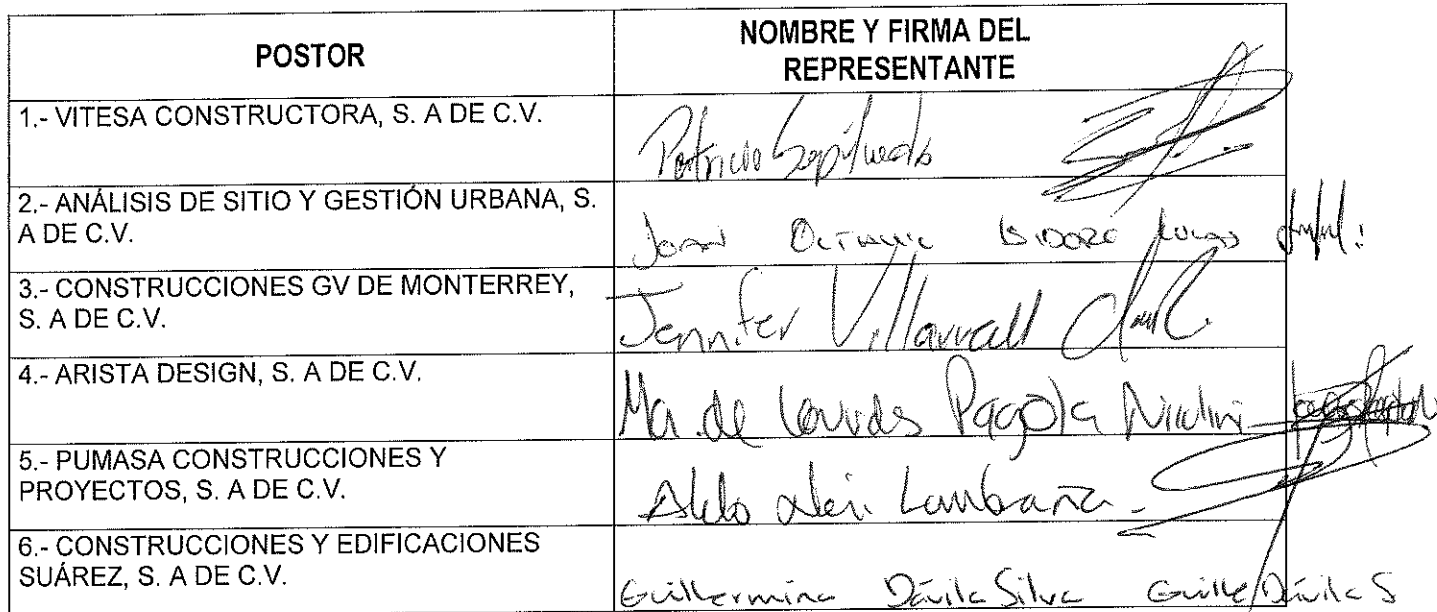 POSTOR
NOMBRE Y FIRMA DEL
REPRESENTANTE
1.- VITESA CONSTRUCTORA, S. A DE C.V.
Patricio Sepúlveda
2.- ANÁLISIS DE SITIO Y GESTIÓN URBANA, S.
A DE C.V.
ISIDORO
3.- CONSTRUCCIONES GV DE MONTERREY,
S. A DE C.V.
Jennifer Villarreall
4.- ARISTA DESIGN, S. A DE C.V.
Ma. de Lourdes Pagola
5.- PUMASA CONSTRUCCIONES Y
PROYECTOS, S. A DE C.V.
Aldo
6.- CONSTRUCCIONES Y EDIFICACIONES
SUÁREZ, S. A DE C.V.
Guillermina Dávila Silva Guille Dávila S